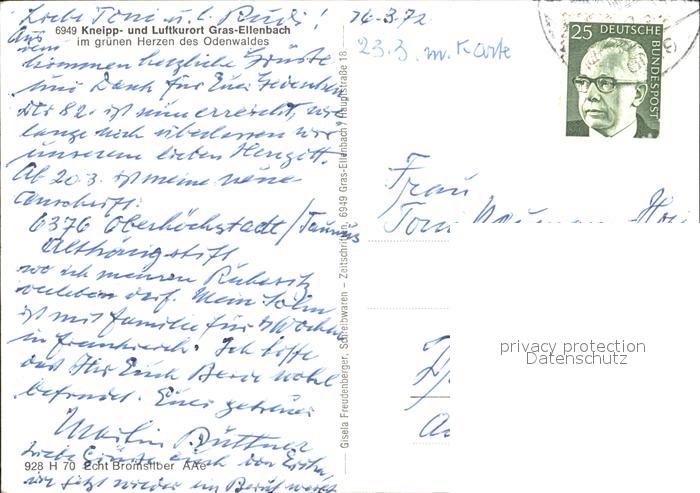 Liebe Toni u. l. Rudi! 16-3.72
6949 Kneipp- und Luftkurort Gras-Ellenbach
im grünen Herzen des Odenwaldes
23.3. m. Karte
25 DEUTSCHE
BUNDESPOST
Aus
kommen herzliche Grüsse
und Dank für Euer Gedenken
Der 82. ist nun erreicht, wie
lange noch überlassen wir
unserem lieben Herrgott.
Ab 20.3. ist meine neue
Anschrift:
6376 Oberhöchstadt/Taunus
Althönigstift
wo ich meinen Ruhesitz
verleben darf. Mein Sohn
ist mit Familie für 3 Wochen
in Frankreich. Ich hoffe
dass Ihr Euch Beide wohl
befindet. Euer getreuer
Martin Büttner
Liebe Grüsse auch von
die jetzt wieder im Beruf
928 H 70 Echt Bromsilber AAe
Gisela Freudenberger, Schreibwaren – Zeitschriften, 6949 Gras-Ellenbach / Hauptstraße 18
Frau
Toni
privacy protection
Datenschutz